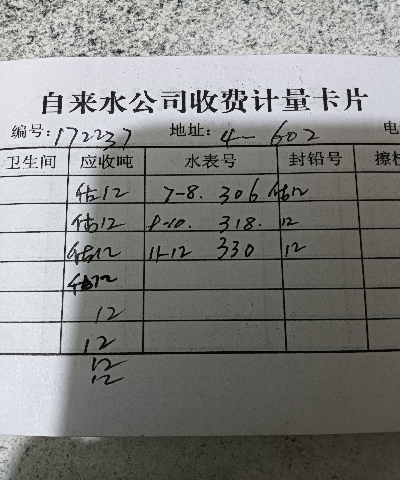 自来水公司收费计量卡片
编号: 172237 地址: 4-602 电
卫生间 应收吨 水表号 封铅号 擦
估12 7-8. 306 估12
估12 9-10. 318. 12
估12 11-12 330 12
估12
12
12
12
12